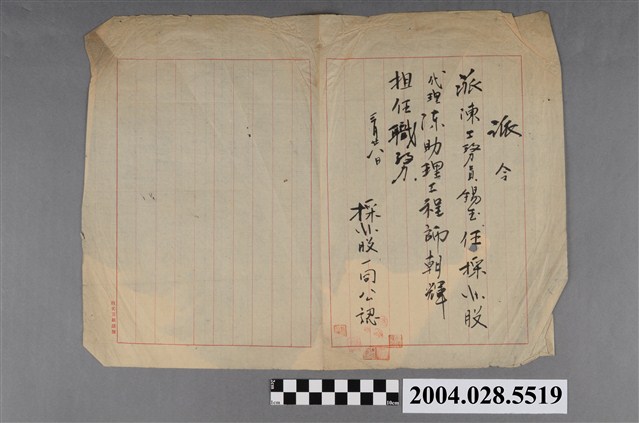 派令
派陳工務員錫 任採水股
代理陳助理工程師朝輝
担任職務
三月廿八日
採水股一同公認
5cm
10cm
2004.028.5519